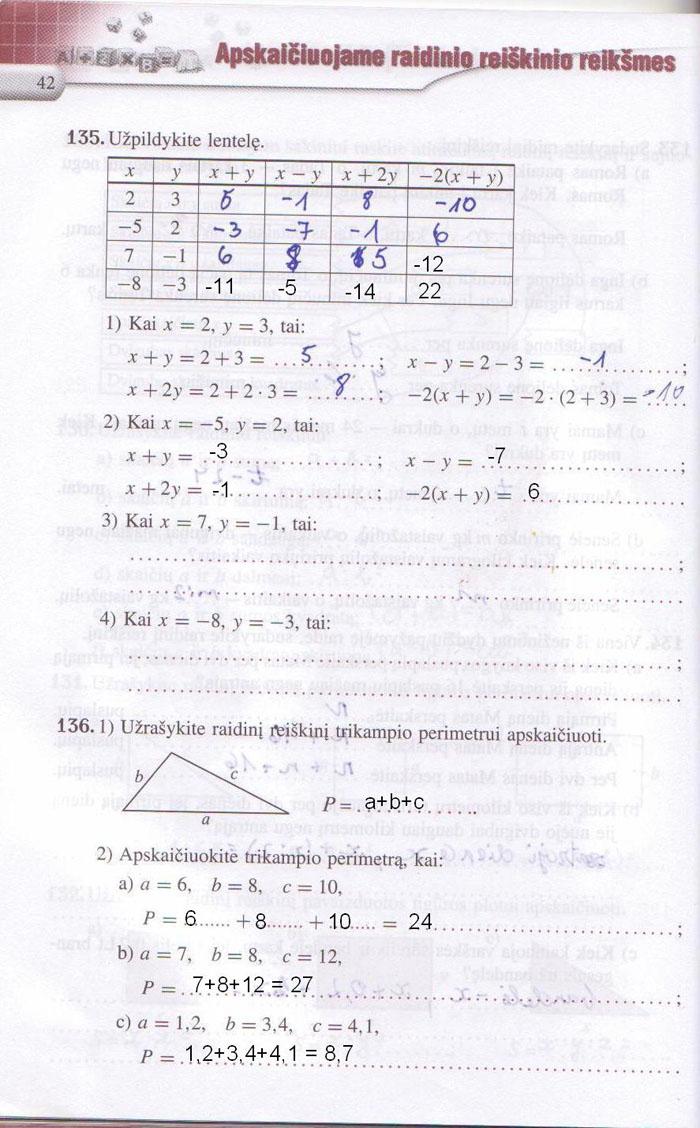 Apskaičiuojame raidinio reiškinio reikšmes
42
135. Užpildykite lentelę.
x y x + y x − y x + 2y −2(x + y)
2 3 5 -1 8 -10
−5 2 -3 -7 -1 6
7 −1 6 8 5 -12
−8 −3 -11 -5 -14 22
1) Kai x = 2, y = 3, tai:
x + y = 2 + 3 = 5 ; x − y = 2 − 3 = -1 ;
x + 2y = 2 + 2 · 3 = 8 −2(x + y) = −2 · (2 + 3) = -10
2) Kai x = −5, y = 2, tai:
x + y = -3 ; x − y = -7 ;
x + 2y = -1 −2(x + y) = 6
3) Kai x = 7, y = −1, tai:
;
4) Kai x = −8, y = −3, tai:
;
136. 1) Užrašykite raidinį reiškinį trikampio perimetrui apskaičiuoti.
b c
P = a+b+c
a
2) Apskaičiuokite trikampio perimetrą, kai:
a) a = 6, b = 8, c = 10,
P = 6 + 8 + 10 = 24 ;
b) a = 7, b = 8, c = 12,
P = 7+8+12 = 27 ;
c) a = 1,2, b = 3,4, c = 4,1,
P = 1,2+3,4+4,1 = 8,7